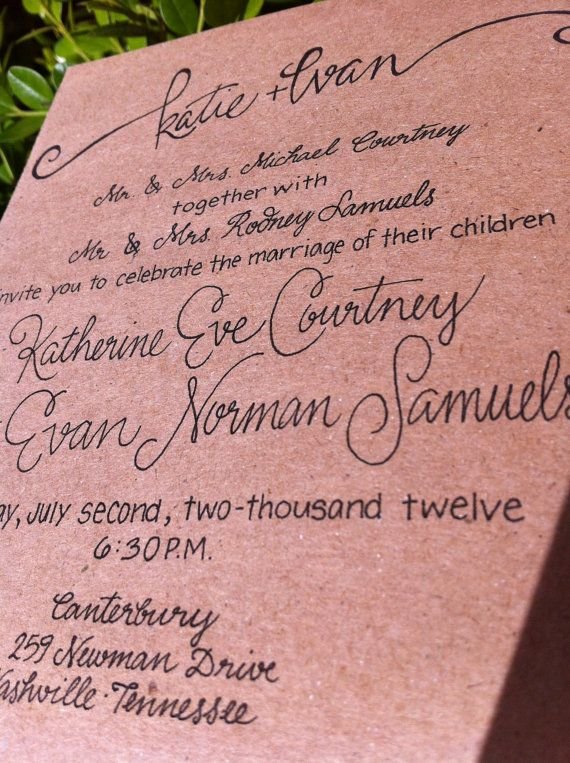 katie + Evan
Mr. & Mrs. Michael Courtney
together with
Mr & Mrs. Rodney Samuels
invite you to celebrate the marriage of their children
Katherine Eve Courtney
Evan Norman Samuels
ay, July second, two-thousand twelve
6:30 P.M.
Canterbury
259 Newman Drive
Nashville · Tennessee